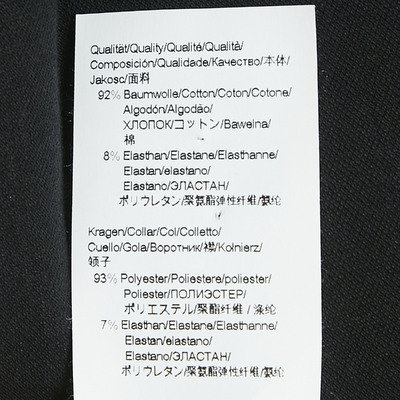 Qualität/Quality/Qualité/Qualità/
Composición/Qualidade/Качество/本体/
Jakosc/面料
92% Baumwolle/Cotton/Coton/Cotone/
Algodón/Algodão/
ХЛОПОК/コットン/Bawelna/
棉
8% Elasthan/Elastane/Elasthanne/
Elastan/elastano/
Elastano/ЭЛАСТАН/
ポリウレタン/聚氨酯弹性纤维/氨纶
Kragen/Collar/Col/Colletto/
Cuello/Gola/Воротник/襟/Kolnierz/
领子
93% Polyester/Poliestere/poliester/
Poliester/ПОЛИЭСТЕР/
ポリエステル/聚酯纤维 / 涤纶
7% Elasthan/Elastane/Elasthanne/
Elastan/elastano/
Elastano/ЭЛАСТАН/
ポリウレタン/聚氨酯弹性纤维/氨纶